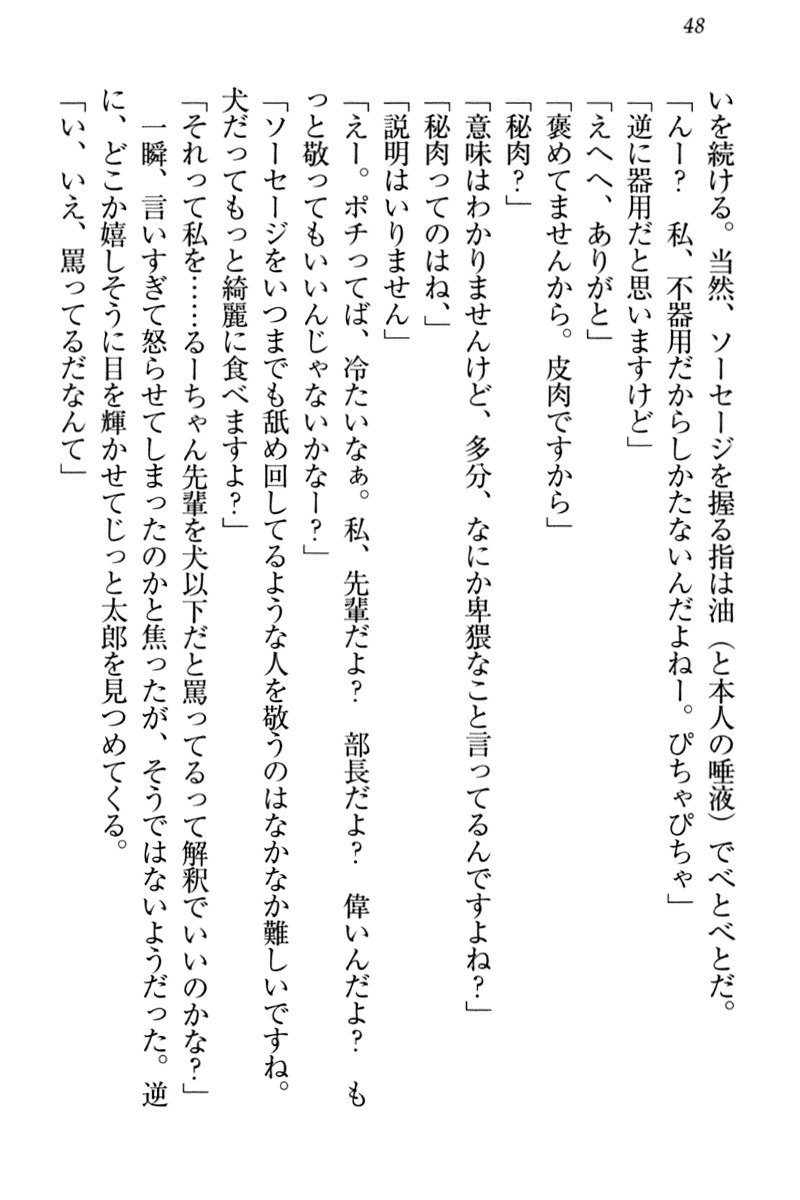 48
いを続ける。当然、ソーセージを握る指は油（と本人の唾液）でべとべとだ。
「んー？　私、不器用だからしかたないんだよねー。ぴちゃぴちゃ」
「逆に器用だと思いますけど」
「えへへ、ありがと」
「褒めてませんから。皮肉ですから」
「秘肉？」
「意味はわかりませんけど、多分、なにか卑猥なこと言ってるんですよね？」
「秘肉ってのはね、」
「説明はいりません」
「えー。ポチってば、冷たいなぁ。私、先輩だよ？　部長だよ？　偉いんだよ？　も
っと敬ってもいいんじゃないかなー？」
「ソーセージをいつまでも舐め回してるような人を敬うのはなかなか難しいですね。
犬だってもっと綺麗に食べますよ？」
「それって私を……るーちゃん先輩を犬以下だと罵ってるって解釈でいいのかな？」
　一瞬、言いすぎて怒らせてしまったのかと焦ったが、そうではないようだった。逆
に、どこか嬉しそうに目を輝かせてじっと太郎を見つめてくる。
「い、いえ、罵ってるだなんて」